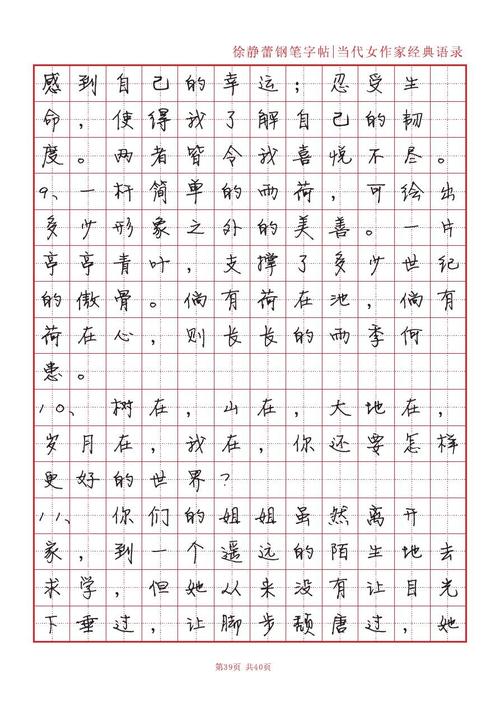 徐静蕾钢笔字帖|当代女作家经典语录
感到自己的幸运；忍受生
命，使得我了解自己的韧
度。两者皆令我喜悦不尽。
9、一杆简单的雨荷，可绘出
多少形象之外的美善。一片
亭亭青叶，支撑了多少世纪
的傲骨。倘有荷在池，倘有
荷在心，则长长的雨季何
患。
10、树在，山在，大地在，
岁月在，我在，你还要怎样
更好的世界？
11、你们的姐姐虽然离开
家，到一个遥远的陌生地去
求学，但她从来没有让目光
下垂过，让脚步颓唐过，她
第39页 共40页